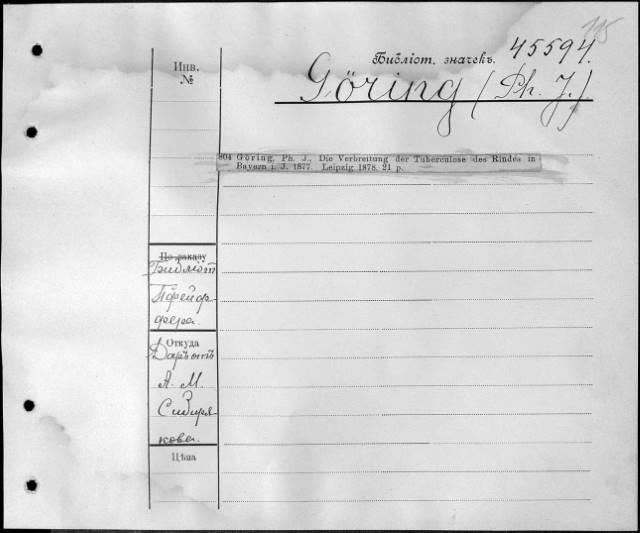 115
Библіот. значекъ. 45594.
Инв.
№
Göring (Ph. J.)
804 Göring, Ph. J., Die Verbreitung der Tuberculose des Rindes in
Bayern i. J. 1877. Leipzig 1878. 21 p.
По заказу
Библіот
Пфейф-
фера.
Откуда
Даръ отъ
А. М.
Сибиря-
кова.
Цѣна